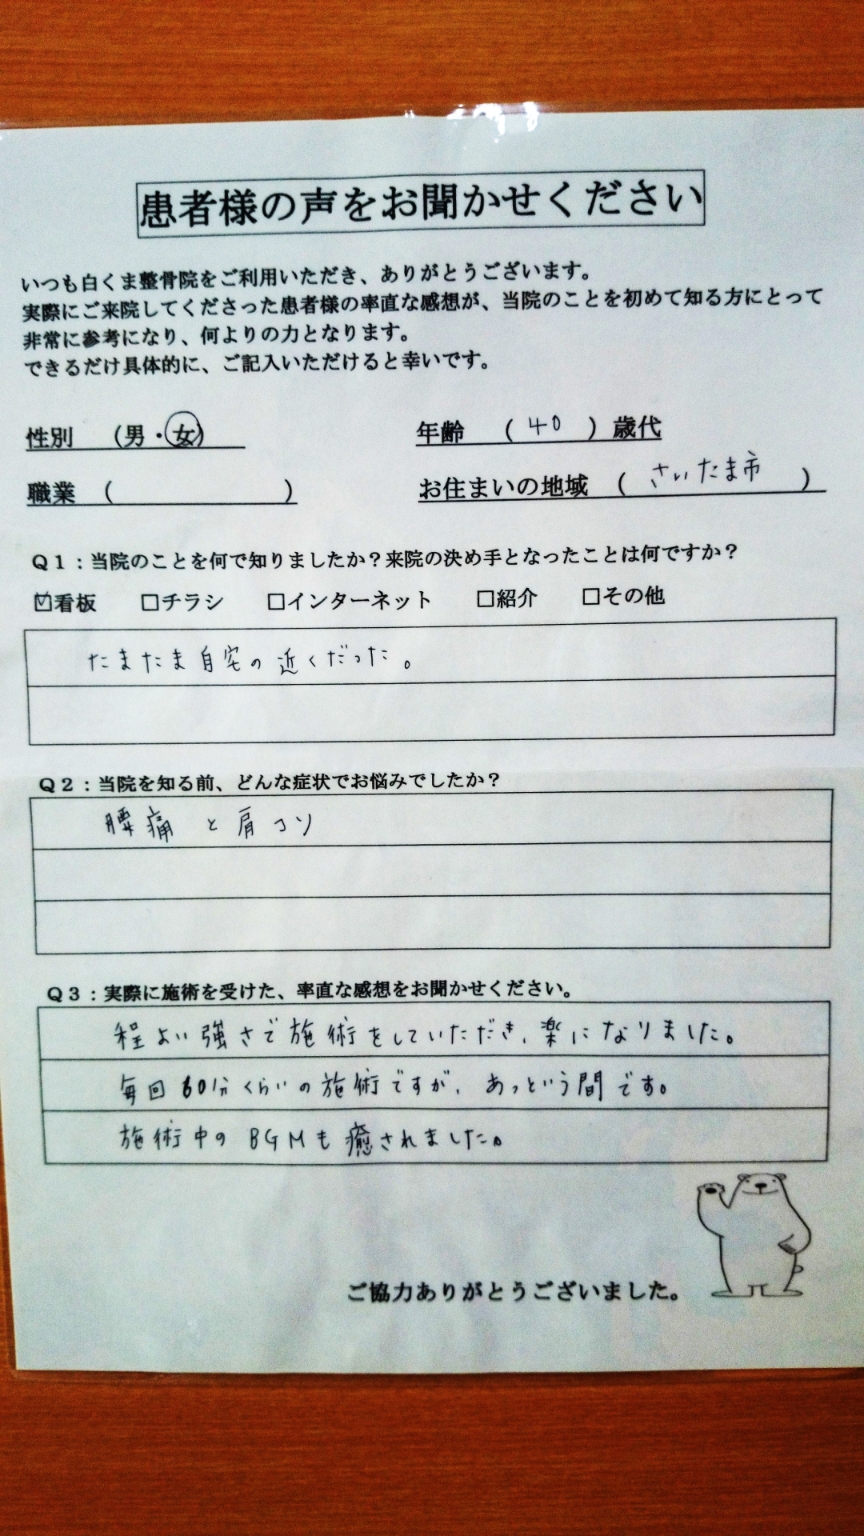 患者様の声をお聞かせください
いつも白くま整骨院をご利用いただき、ありがとうございます。
実際にご来院してくださった患者様の率直な感想が、当院のことを初めて知る方にとって
非常に参考になり、何よりの力となります。
できるだけ具体的に、ご記入いただけると幸いです。
性別 (男・女) 年齢 (40) 歳代
職業 ( ) お住まいの地域 (さいたま市)
Q1：当院のことを何で知りましたか？来院の決め手となったことは何ですか？
☑看板 □チラシ □インターネット □紹介 □その他
たまたま自宅の近くだった。
Q2：当院を知る前、どんな症状でお悩みでしたか？
腰痛と肩コリ
Q3：実際に施術を受けた、率直な感想をお聞かせください。
程よい強さで施術をしていただき、楽になりました。
毎回60分くらいの施術ですが、あっという間です。
施術中のBGMも癒されました。
ご協力ありがとうございました。